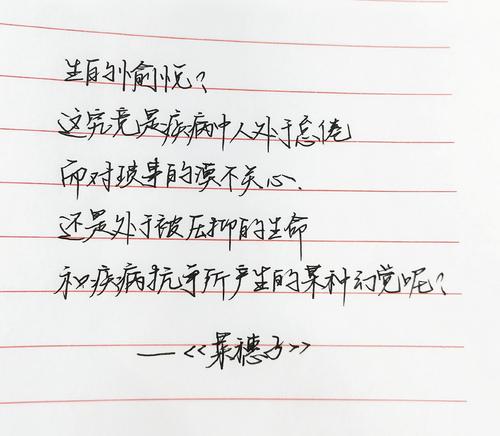 生的愉悦？
这究竟是疾病中人处于怠倦
而对琐事的漠不关心、
还是处于被压抑的生命
和疾病抗争所产生的某种幻觉呢？
—《菓穗子》